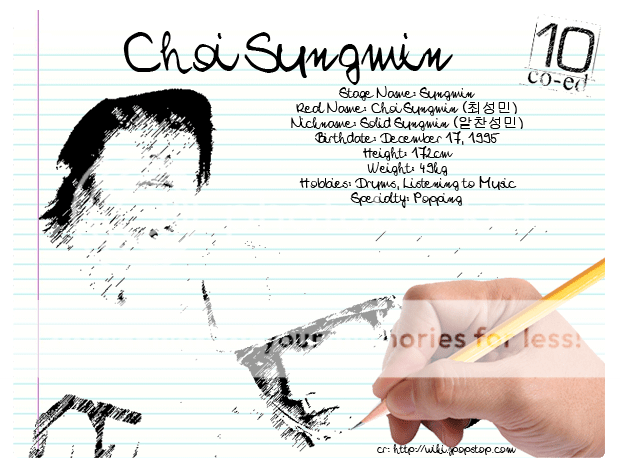 Choi Sungmin
10
co-ed
Stage Name: Sungmin
Real Name: Choi Sungmin (최성민)
Nickname: Solid Sungmin (알찬성민)
Birthdate: December 17, 1995
Height: 172cm
Weight: 49kg
Hobbies: Drums, Listening to Music
Specialty: Popping
your memories for less!
cr: http://wiki.jpopstop.com